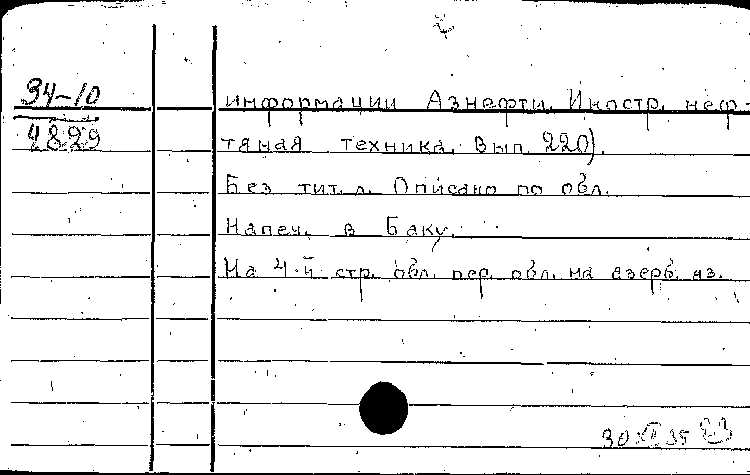 34-10
4829
информации Азнефти. Иностр. неф-
тяная техника. Вып. 220).
Без тит. л. Описано по обл.
Напеч. в Баку.
На 4-й стр. обл. пер. обл. на азерб. яз.
30 XII 35